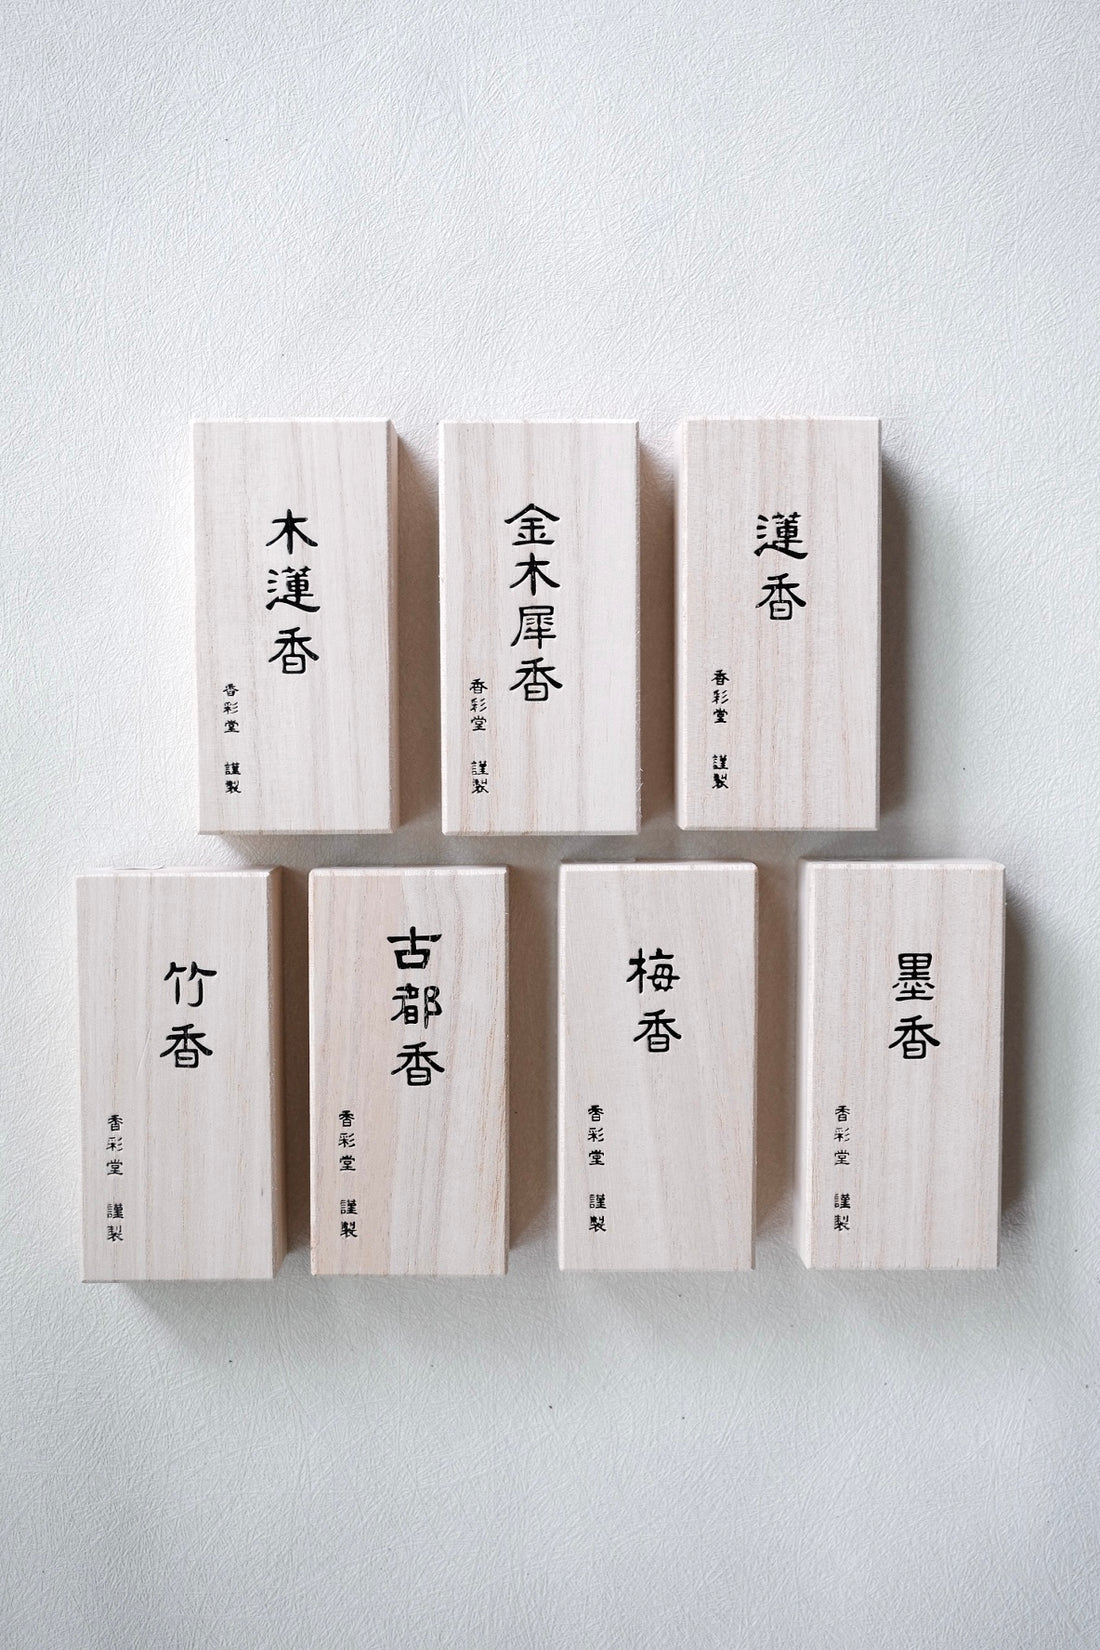 木蓮香
香彩堂 謹製
金木犀香
香彩堂 謹製
蓮香
香彩堂 謹製
竹香
香彩堂 謹製
古都香
香彩堂 謹製
梅香
香彩堂 謹製
墨香
香彩堂 謹製